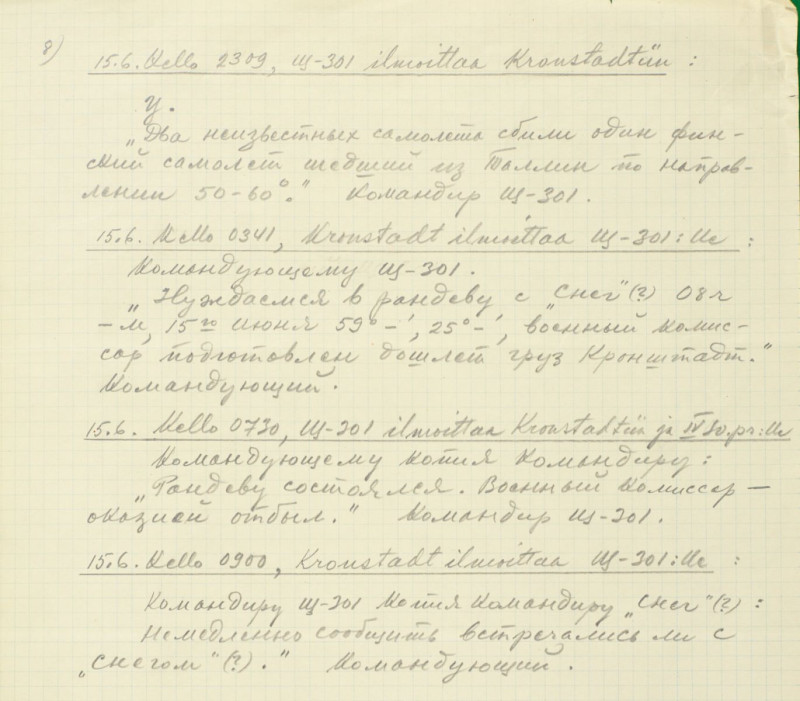 8)
15.6. Kello 2309, Щ-301 ilmoittaa Kronstadtiin :
У.
„Два неизвестных самолета сбили один фин-
ский самолет шедший из Таллин по направ-
лении 50-60°." Командир Щ-301.
15.6. Kello 0341, Kronstadt ilmoittaa Щ-301:lle :
Командующему Щ-301.
„Нуждаемся в рандеву с „Снег"(?) 08ч
-м, 15го июня 59°-', 25°-', военный комис-
сар подготовлен дошлет груз Кронштадт."
Командующий.
15.6. Kello 0730, Щ-301 ilmoittaa Kronstadtiin ja :lle
Командующему копия Командиру :
„Рандеву состоялся. Военный Комиссар —
оказией отбыл." Командир Щ-301.
15.6. Kello 0900, Kronstadt ilmoittaa Щ-301:lle :
Командиру Щ-301 Копия Командиру „Снег"(?) :
Немедленно сообщить встречались ли с
„Снегом"(?)." Командующий.